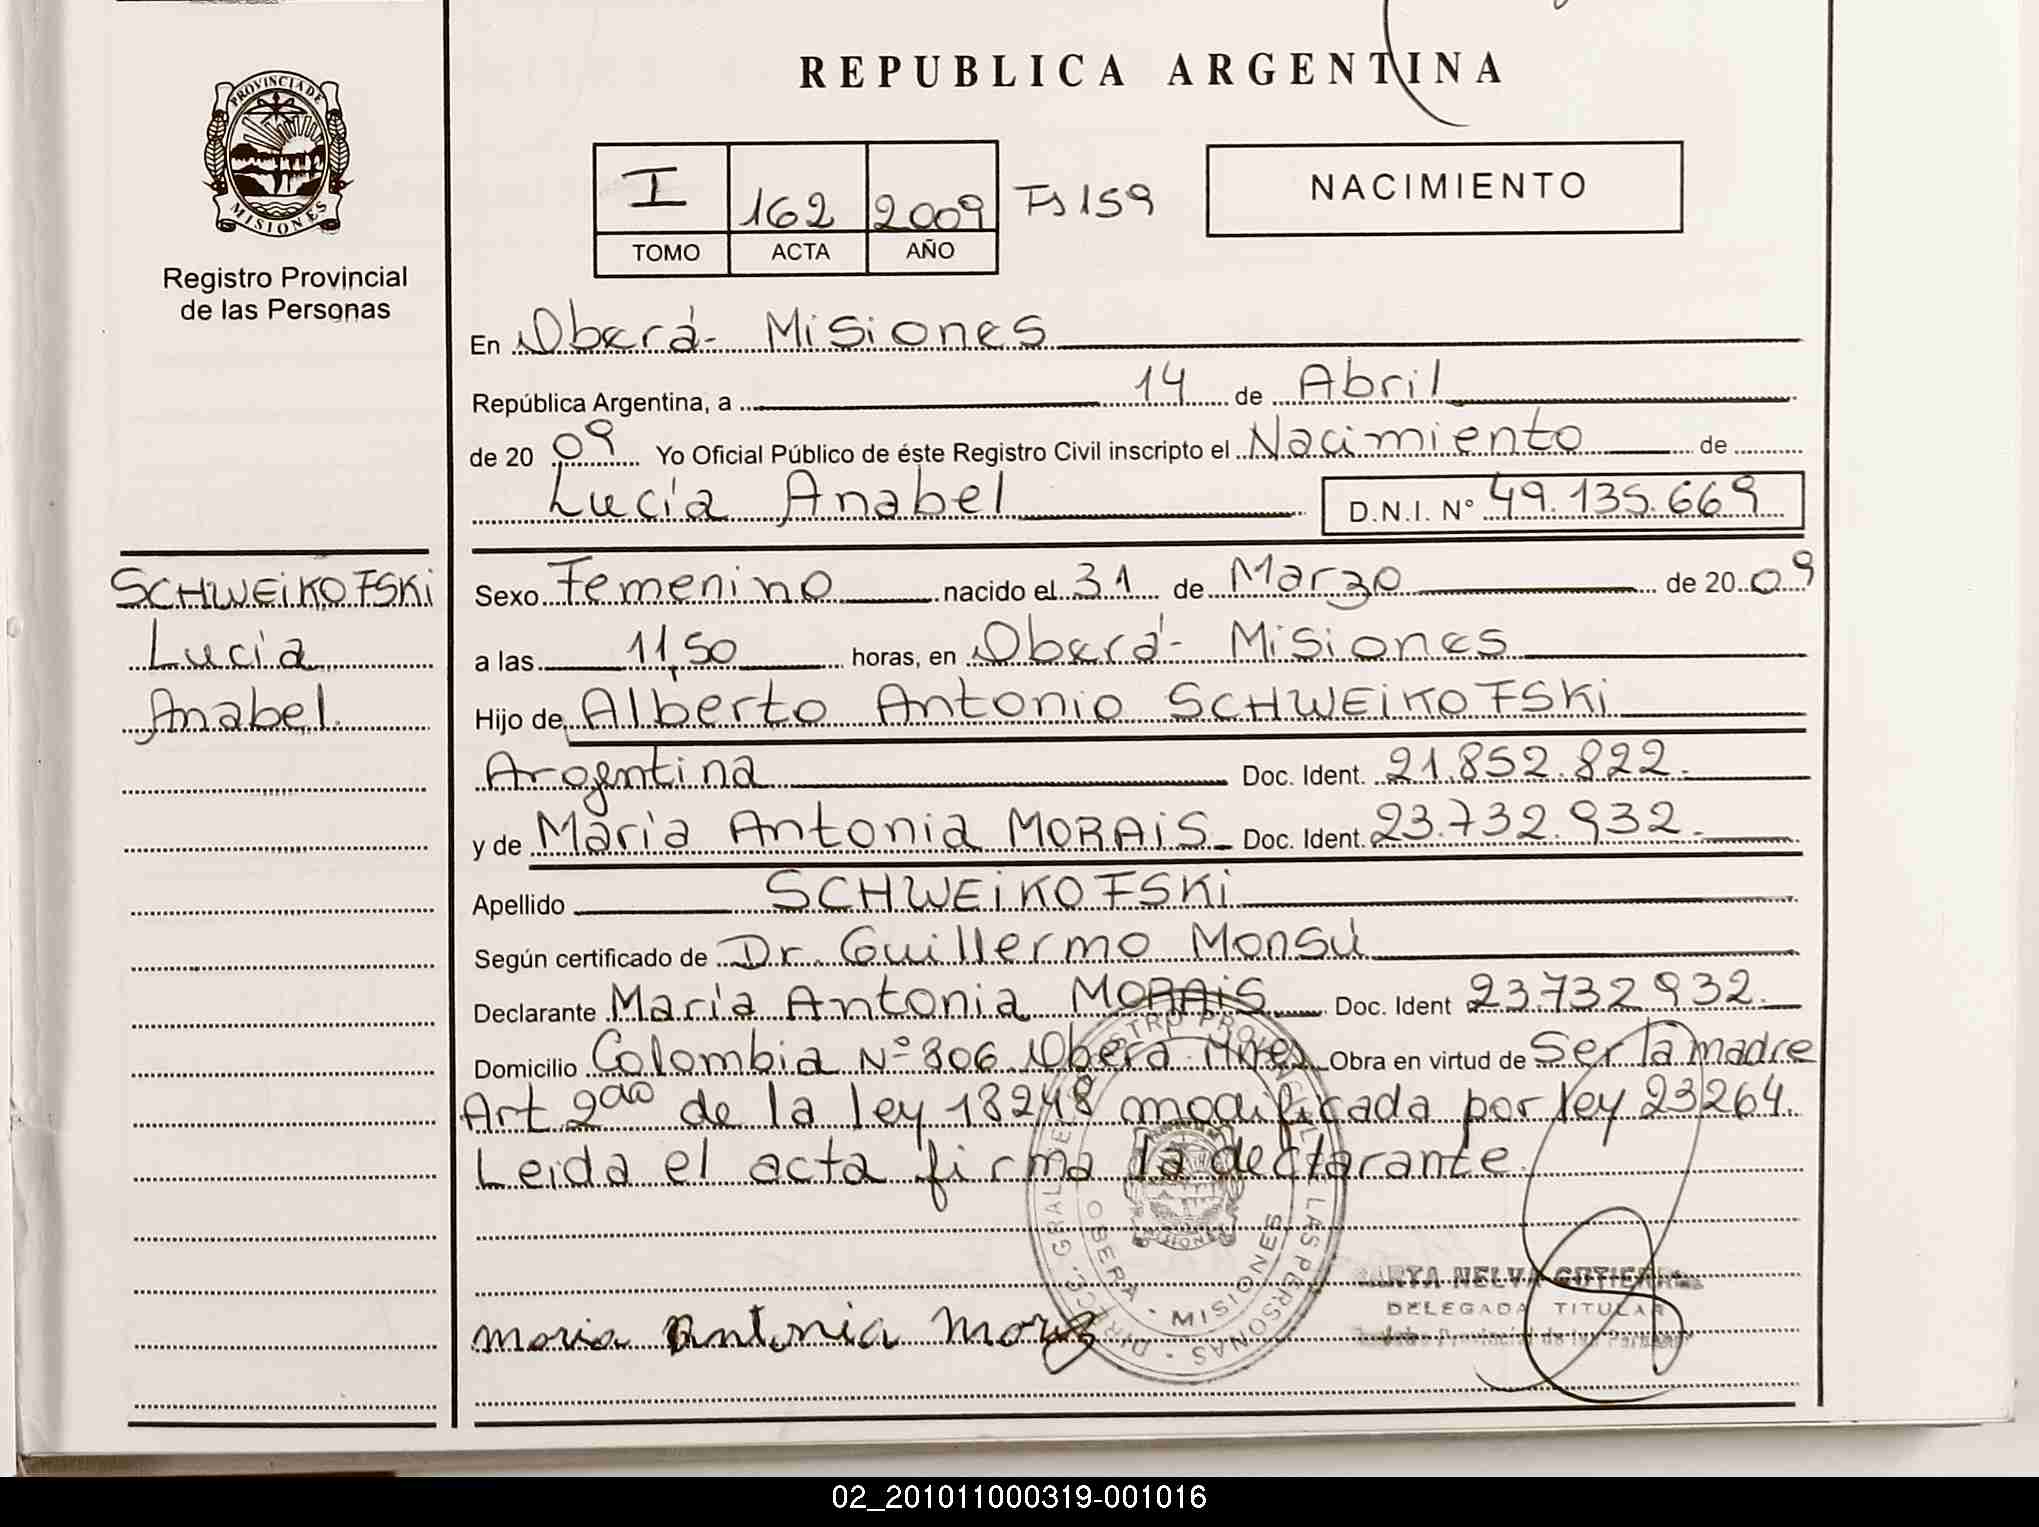 REPUBLICA ARGENTINA
PROVINCIA DE
MISIONES
Registro Provincial
de las Personas
I 162 2009 Fs 159
TOMO ACTA AÑO
NACIMIENTO
En Oberá - Misiones
República Argentina, a 14 de Abril
de 20 09 Yo Oficial Público de éste Registro Civil inscripto el Nacimiento de
Lucía Anabel D.N.I. N° 49.135.669
SCHWEiKOFSKi
Lucía
Anabel.
Sexo Femenino nacido el 31 de Marzo de 20 09
a las 11,50 horas, en Oberá - Misiones
Hijo de Alberto Antonio SCHWEiKOFSKi
Argentina Doc. Ident. 21.852.822.
y de María Antonia MORAiS Doc. Ident. 23.732.932.
Apellido SCHWEiKOFSKi
Según certificado de Dr. Guillermo Monsú
Declarante María Antonia MORAiS Doc. Ident 23732932.
Domicilio Colombia Nº 806 Oberá Mnes Obra en virtud de Ser la madre
Art 2do de la ley 18248 modificada por ley 23264.
Leida el acta firma la declarante.
OBERA - MISIONES
NELVA
DELEGADA TITULAR
maria Antonia
02_201011000319-001016